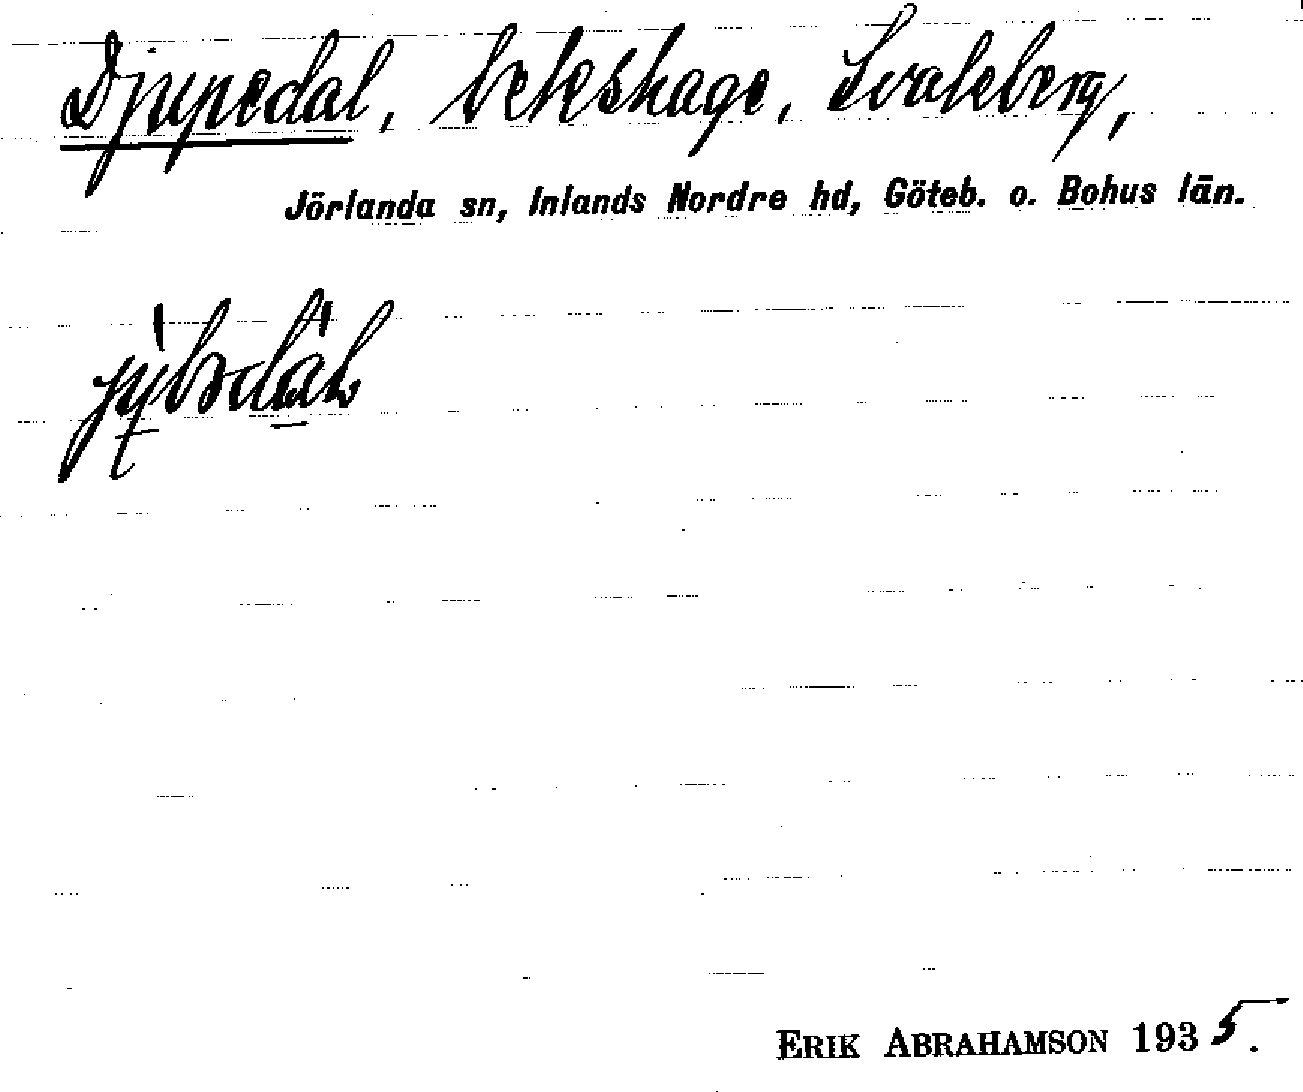 Djupedal, Vekshage, Svakeberg,
Jörlanda sn, Inlands Nordre hd, Göteb. o. Bohus län.
ERIK ABRAHAMSON 1935.